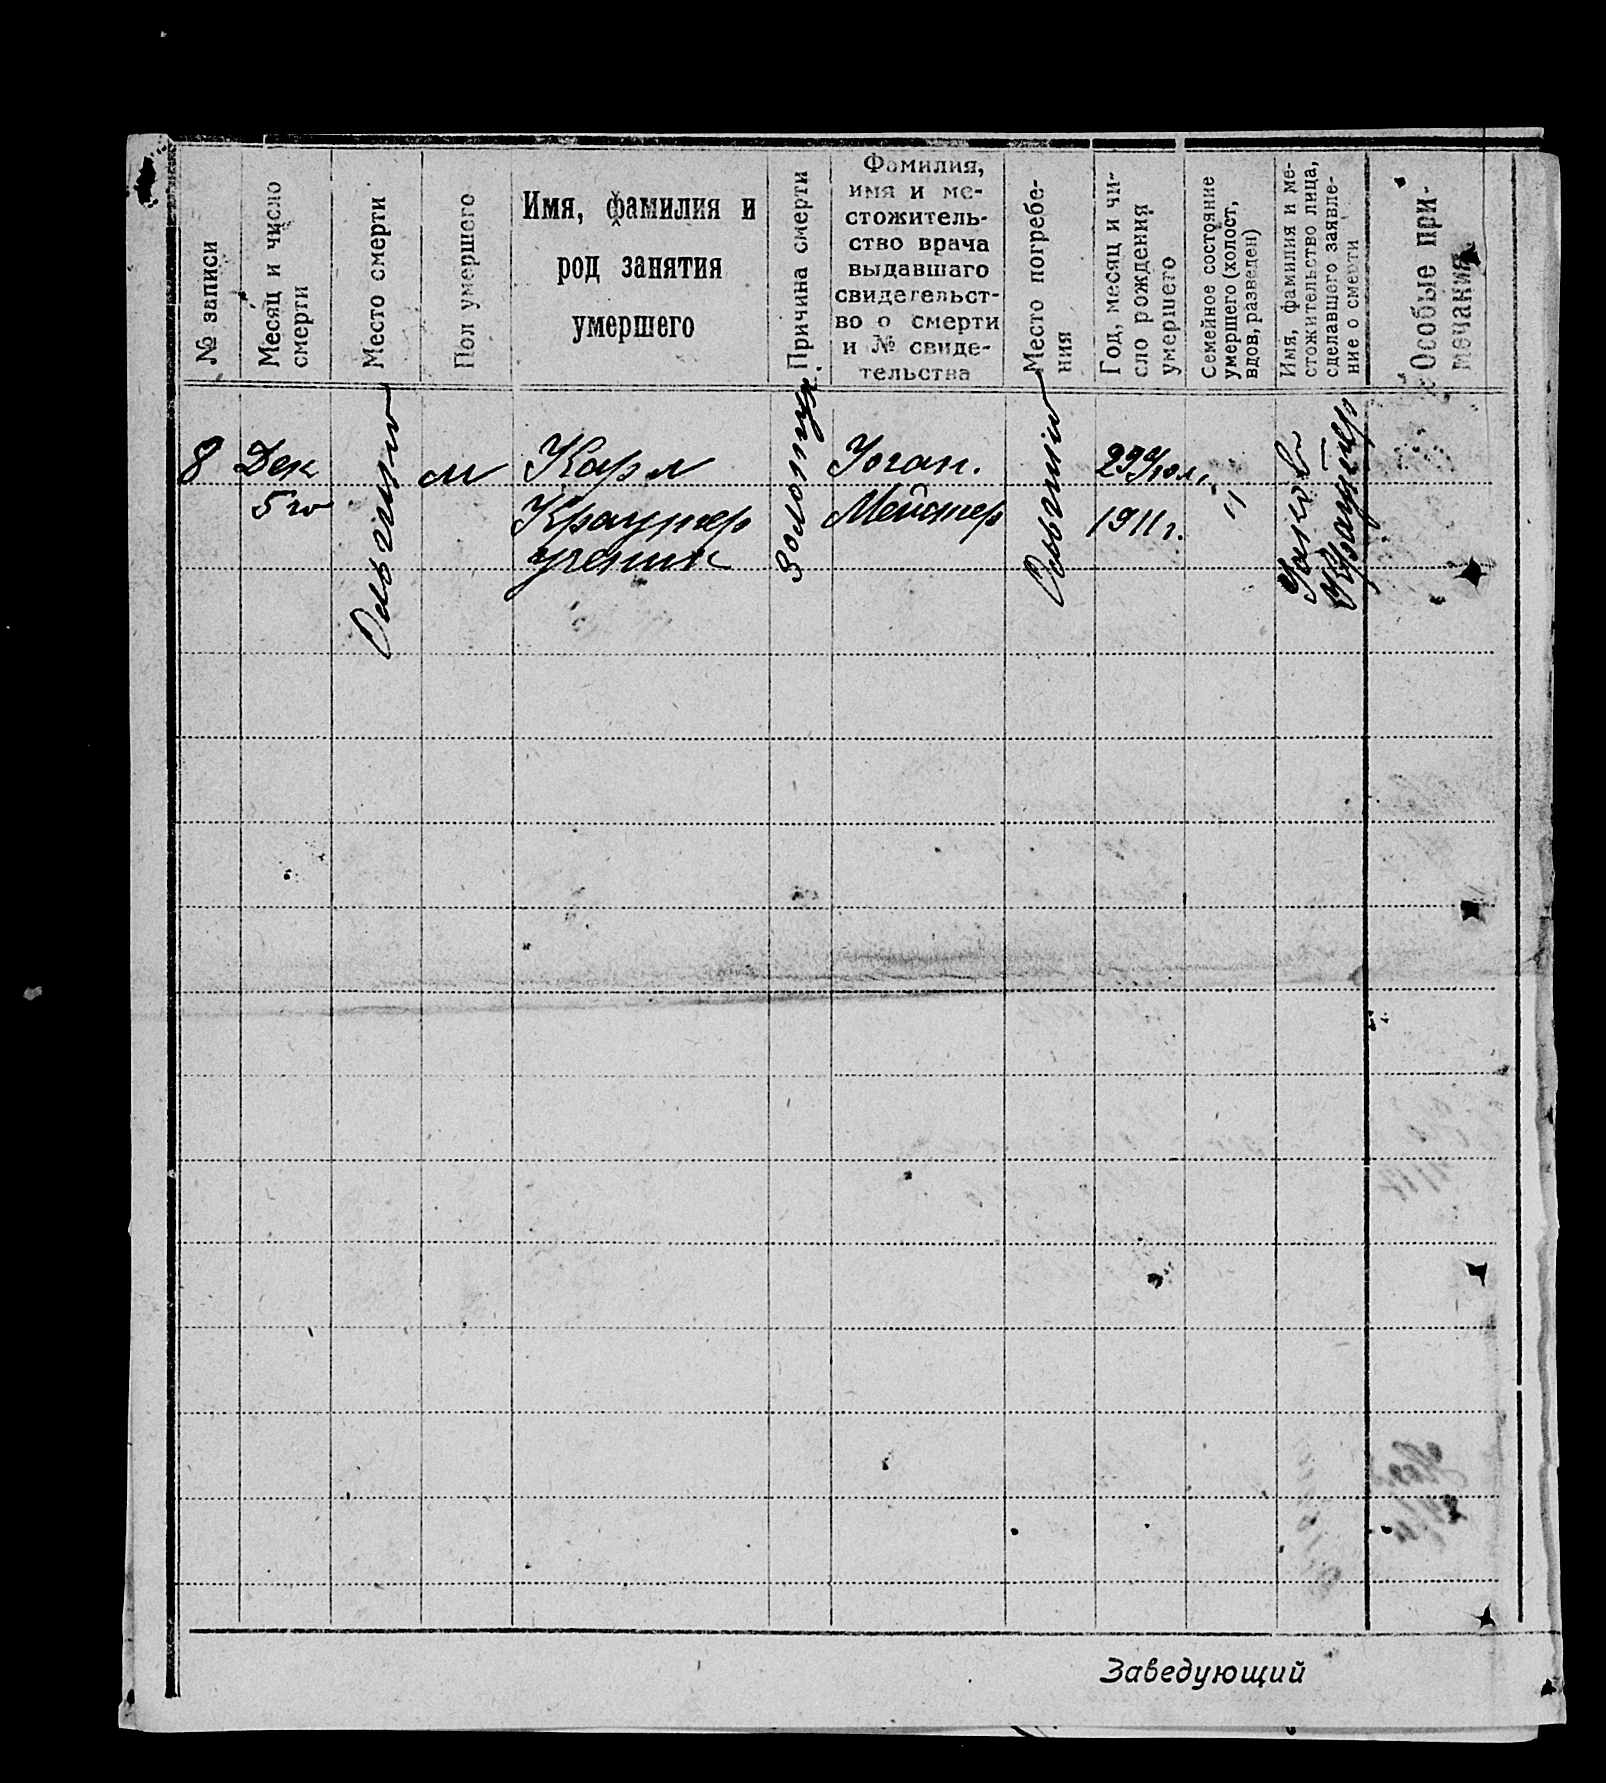 № записи
Месяц и число
смерти
Место смерти
Пол умершего
Имя, фамилия и
род занятия
умершего
Причина смерти
Фамилия,
имя и ме-
стожитель-
ство врача
выдавшаго
свидетельст-
во о смерти
и № свиде-
тельства
Место погребе-
ния
Год, месяц и чи-
сло рождения
умершего
Семейное состояние
умершего (холост,
вдов, разведен)
Имя, фамилия и ме-
стожительство лица,
сделавшего заявле-
ние о смерти
Особые при-
мечания
8
Дек
5го
Ольгино
м
Карл
Краутер
ученик
Золотух.
Иоган.
Мейстер
Ольгино
29 Июл.
1911 г.
"
Яков
Краутер
Заведующий